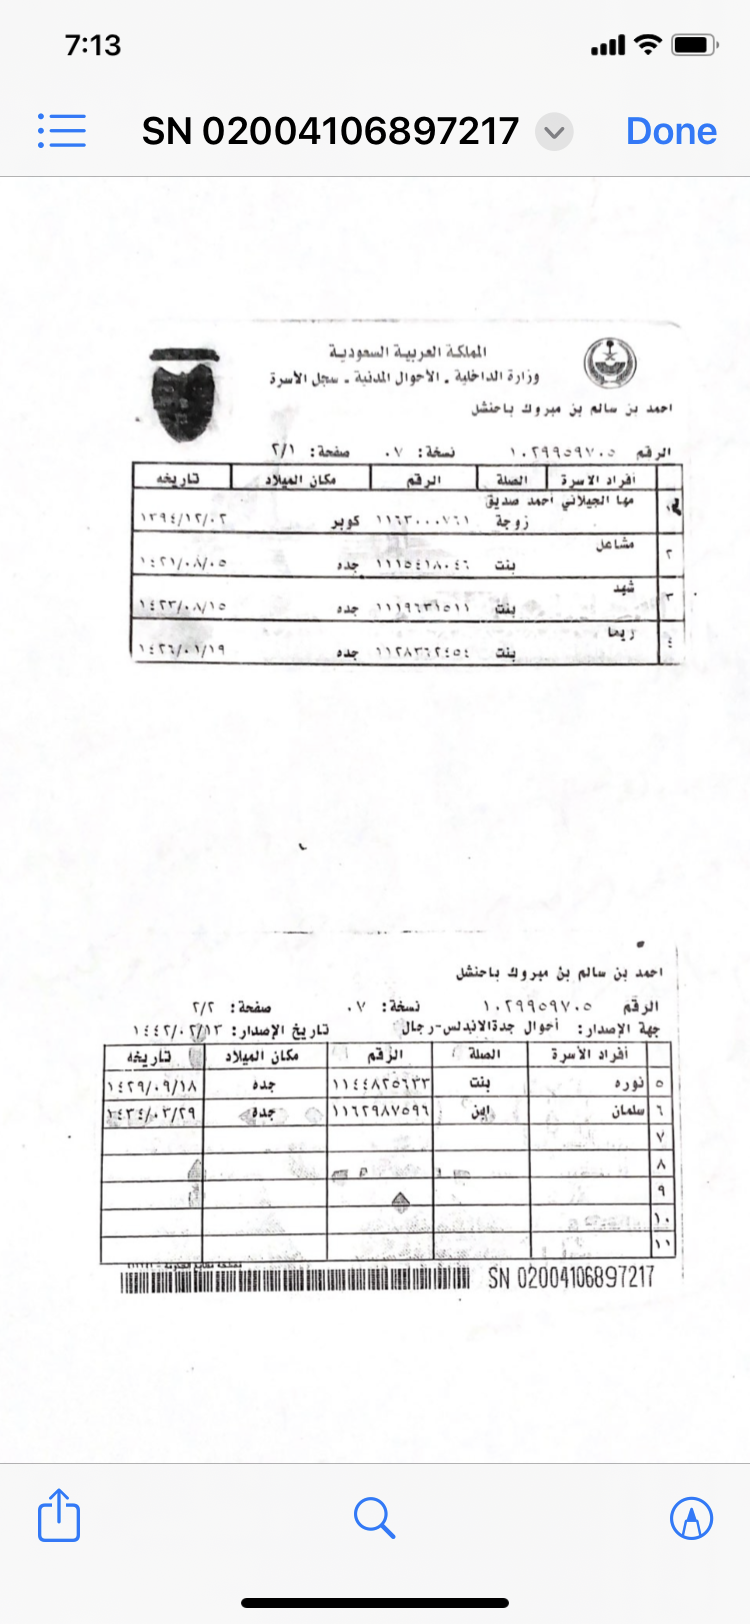 7:13
SN 02004106897217
Done
المملكة العربية السعودية
وزارة الداخلية . الأحوال المدنية . سجل الأسرة
احمد بن سالم بن مبروك باحنشل
الرقم ١٠٢٩٩٥٩٧٠٥ نسخة: ٠٧ صفحة: ٢/١
أفراد الأسرة الصلة الرقم مكان الميلاد تاريخه
١ مها الجيلاني احمد صديق
زوجة ١١٦٣٠٠٠٧٦١ كوبر ١٣٩٤/١٢/٠٢
٢ مشاعل
بنت ١١١٥٤١٨٠٤٦ جده ١٤٢١/٠٨/٠٥
٣ شهد
بنت ١١١٩٦٣١٥١١ جده ١٤٢٣/٠٨/١٥
٤ ريما
بنت ١١٢٨٣٦٢٤٥٤ جده ١٤٢٦/٠١/١٩
احمد بن سالم بن مبروك باحنشل
الرقم ١٠٢٩٩٥٩٧٠٥ نسخة: ٠٧ صفحة: ٢/٢
جهة الإصدار: أحوال جدةالاندلس-رجال تاريخ الإصدار: ١٤٤٢/٠٢/١٣
أفراد الأسرة الصلة الرقم مكان الميلاد تاريخه
٥ نوره بنت ١١٤٤٨٢٥٦٣٣ جده ١٤٢٩/٠٩/١٨
٦ سلمان ابن ١١٦٢٩٨٧٥٩٦ جدة ١٤٣٤/٠٣/٢٩
٧
٨
٩
١٠
١١
SN 02004106897217